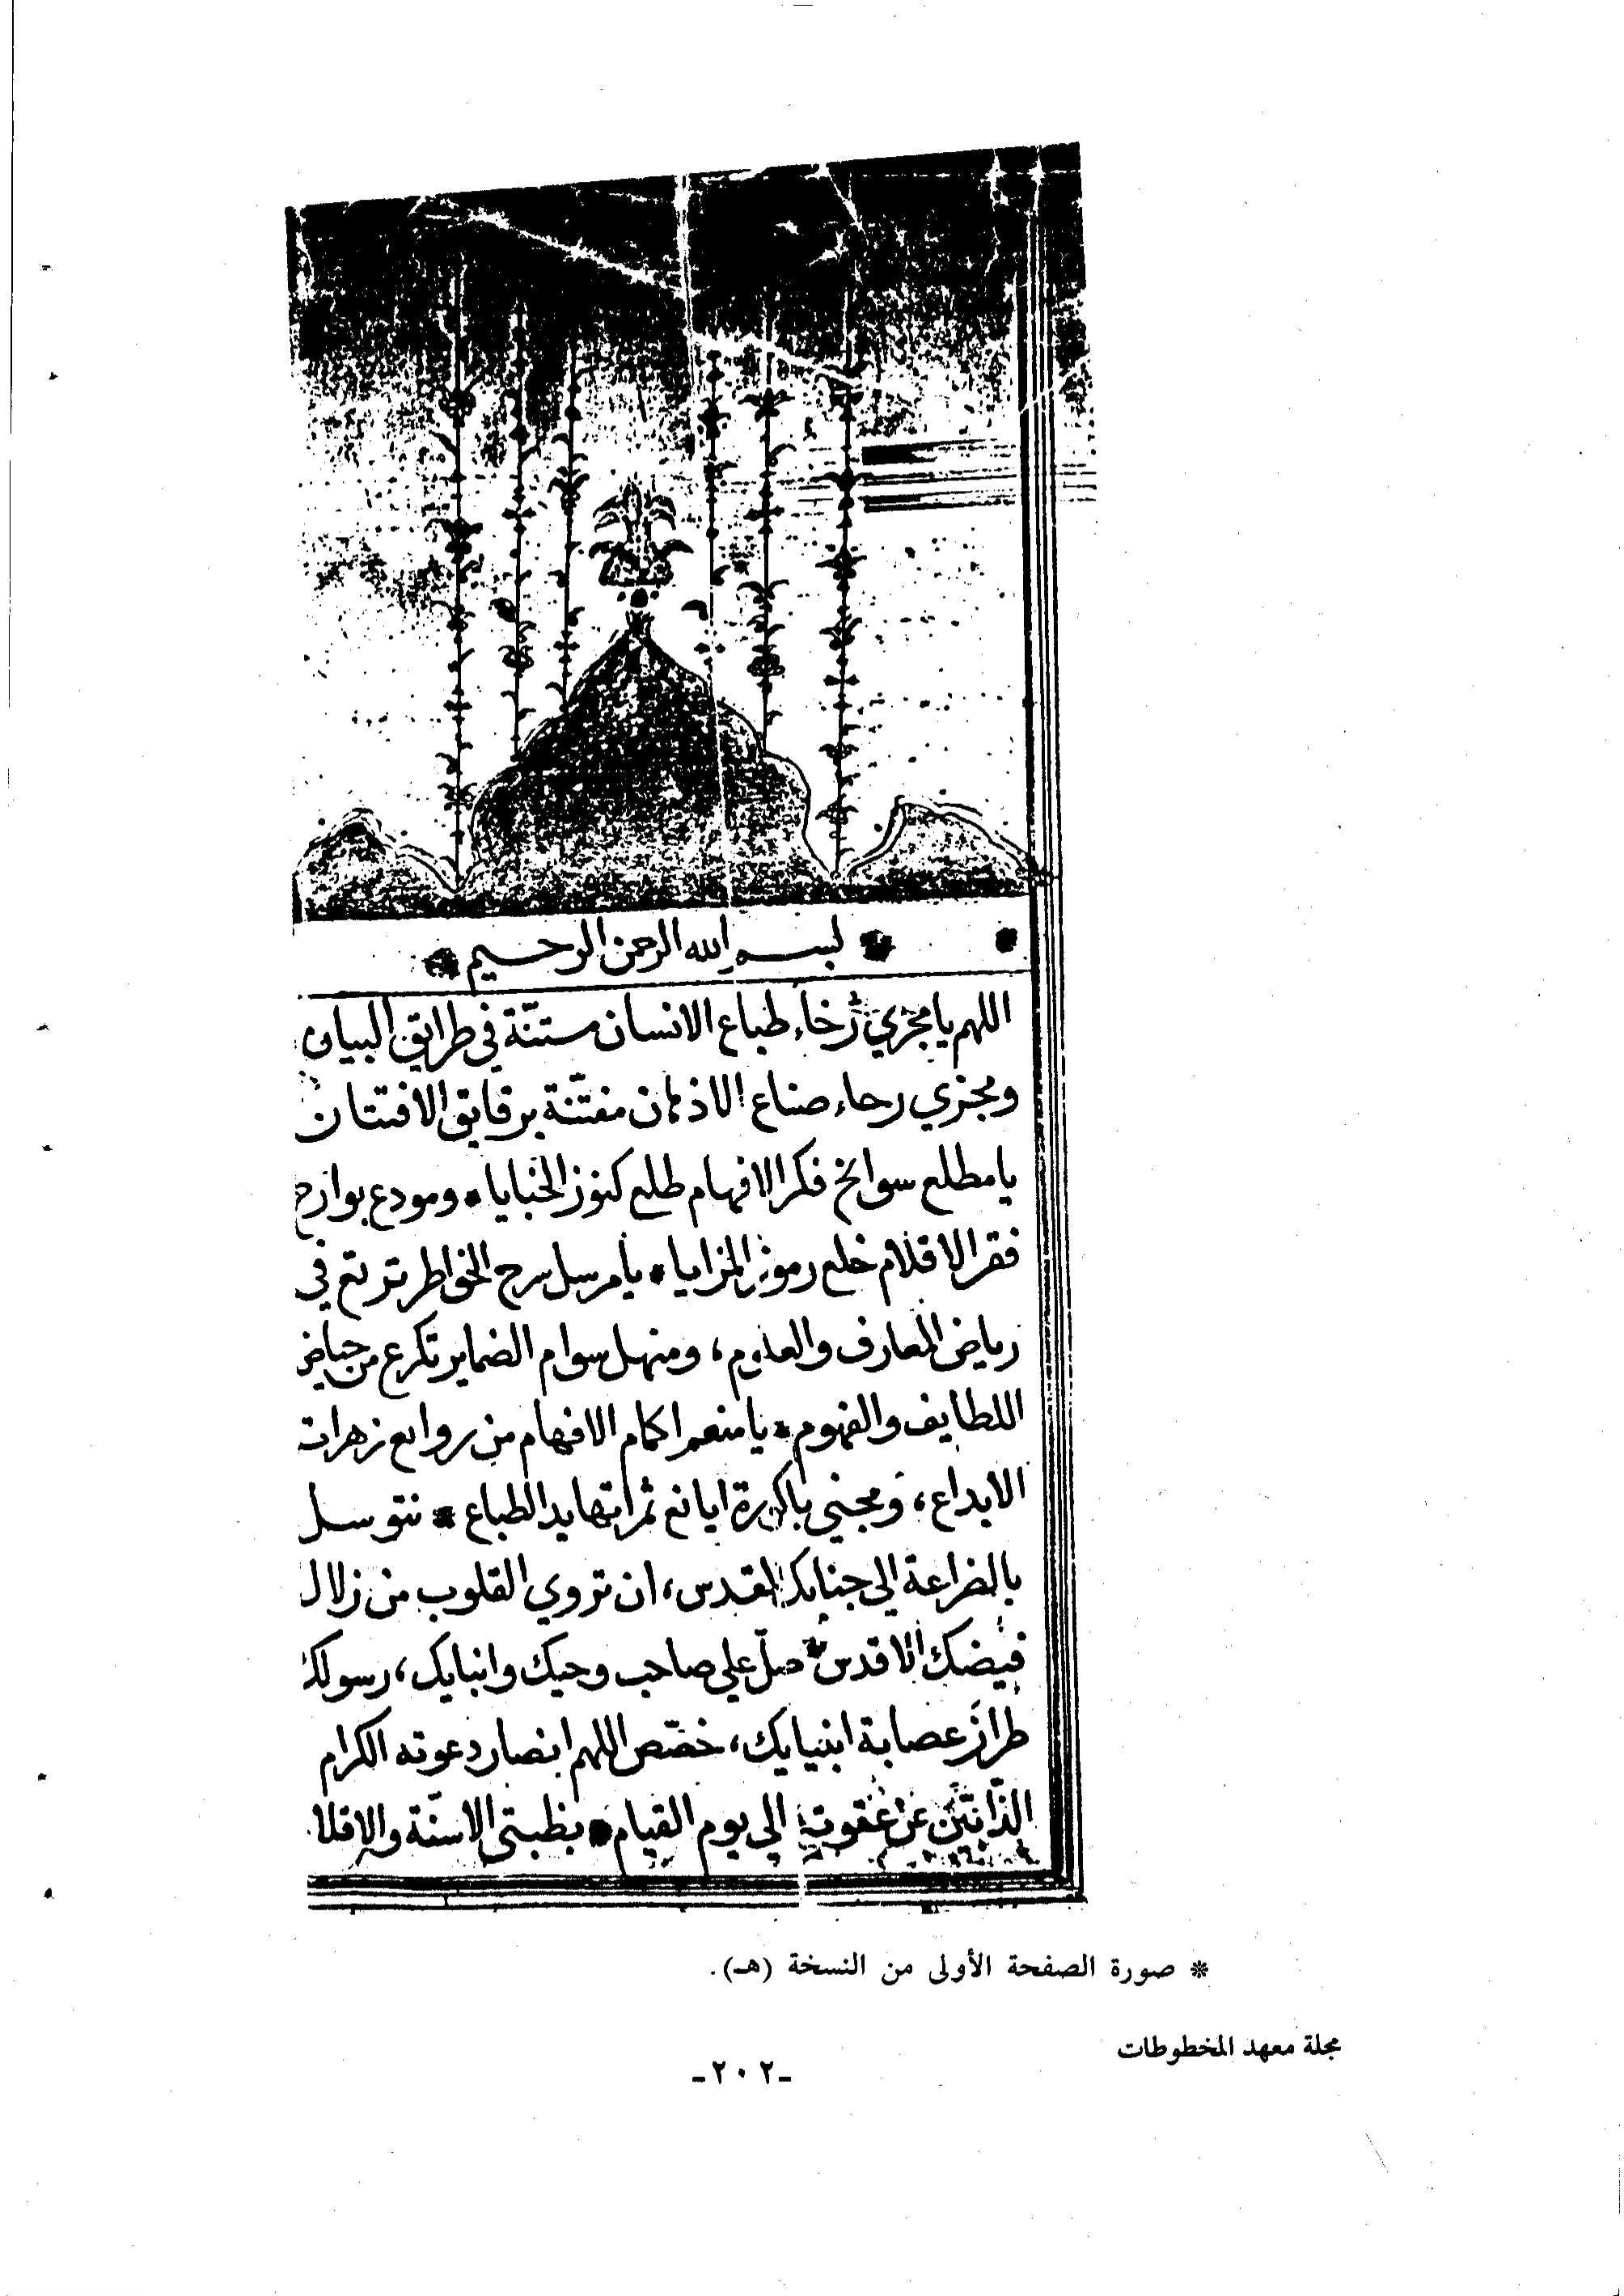 بسم الله الرحمن الرحيم
اللهم يا مجري رُخاء طباع الانسان مستنّة في طرايق البيان
ومجري رحاء صناع الاذهان مفتنّة برقايق الافتتان
يا مطلع سوانح فكر الافهام طلع كنوز الخبايا * ومودع بوارح
فقر الاقلام خلع رموز المزايا * يا مرسل سرح الخواطر ترتع في
رياض المعارف والعلوم، ومنهل سوام الضماير تكرع من حياض
اللطايف والفهوم * يا منعم اكمام الافهام من روايع زهرات
الابداع، ومجني باكورة ايانع ثمراتها يد الطباع * نتوسل
بالضراعة الى جنابك المقدس، ان تروي القلوب من زلال
فيضك الاقدس * صلّ على صاحب وحيك وانبايك، رسولك
طراز عصابة انبيايك، خصّص اللهم انصار دعوته الكرام
الذابين عن الى يوم القيام * بظبتى الاسنّة والاقلا
* صورة الصفحة الأولى من النسخة (هـ).
مجلة معهد المخطوطات
-٢٠٢-